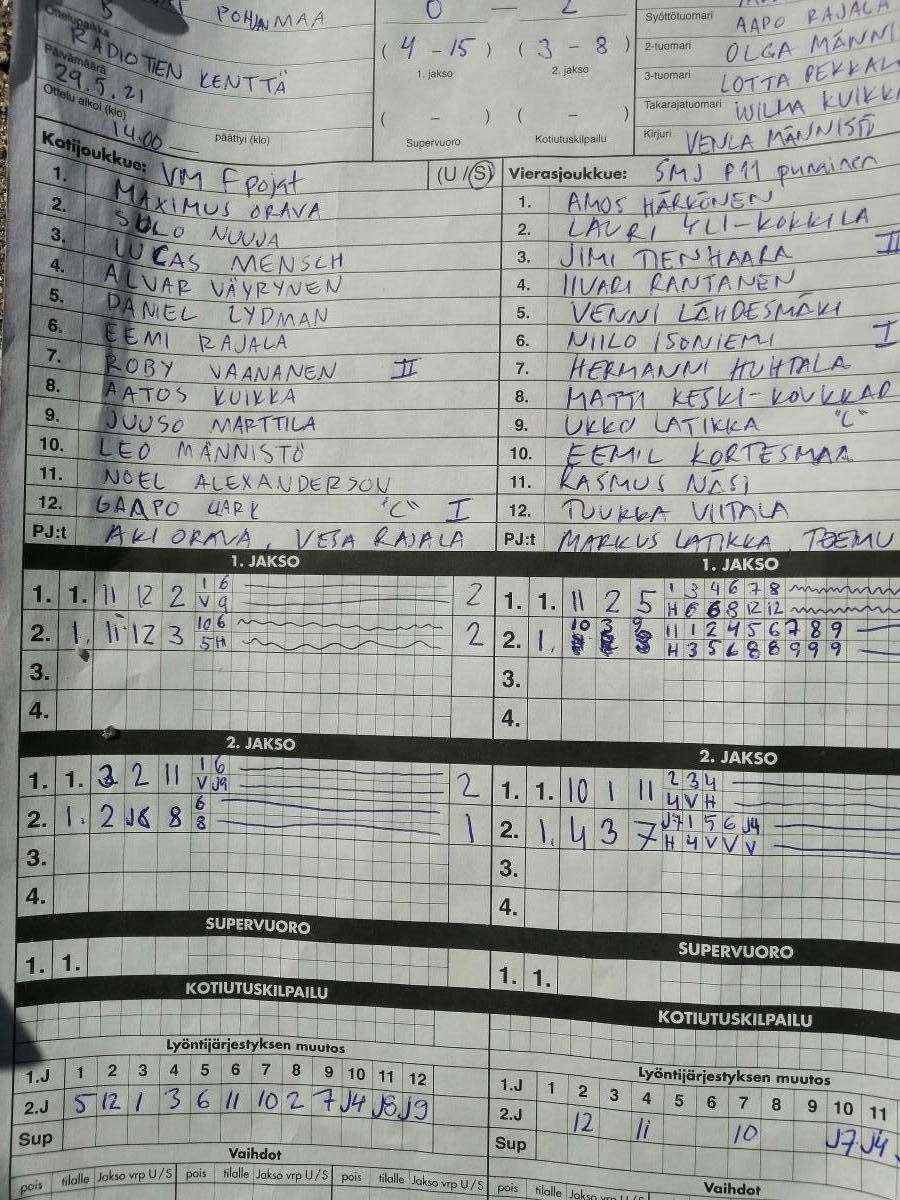 POHJANMAA
0 — 2
Ottelupaikka
RADIOTIEN KENTTÄ
( 4 - 15 ) ( 3 - 8 )
1. jakso 2. jakso
Päivämäärä
29.5.21
Ottelu alkoi (klo)
14.00 päättyi (klo)
( - ) ( - )
Supervuoro Kotiutuskilpailu
Syöttötuomari AAPO RAJALA
2-tuomari OLGA
3-tuomari LOTTA
Takarajatuomari WILMA
Kirjuri VENLA MÄNNISTÖ
Kotijoukkue: VM F pojat (U/S)
1. MAXIMUS ORAVA
2. SULO NUUJA
3. LUCAS MENSCH
4. ALVAR VÄYRYNEN
5. DANIEL LYDMAN
6. EEMI RAJALA
7. ROBY VAANANEN II
8. AATOS KUIKKA
9. JUUSO MARTTILA
10. LEO MÄNNISTÖ
11. NOEL ALEXANDERSON
12. "C" I
PJ:t AKI ORAVA, VESA RAJALA
Vierasjoukkue: SMJ P11 punainen
1. AMOS HÄRKÖNEN
2. LAURI YLI-KOKKILA
3. JIMI TIENHAARA II
4. IIVARI RANTANEN
5. VENNI LÄHDESMÄKI
6. NIILO ISONIEMI I
7. HERMANNI HUHTALA
8. MATTI
9. UKKO LATIKKA "C"
10. EEMIL KORTESMAA
11. RASMUS NÄSI
12. TUUKKA VIITALA
PJ:t MARKUS LATIKKA, TEEMU
1. JAKSO
1. 1. 11 12 2 1 6 2
V 9
2. 1. 11 12 3 10 6 2
5 H
3.
4.
1. JAKSO
1. 1. 11 2 5 1 3 4 6 7 8
H 6 6 8 12 12
2. 1. 10 3 9 11 1 2 4 5 6 7 8 9
H 3 5 6 8 8 9 9 9
3.
4.
2. JAKSO
1. 1. 3 2 11 1 6 2
V J9
2. 1. 2 J6 8 6 1
8
3.
4.
2. JAKSO
1. 1. 10 1 11 2 3 4
4 V H
2. 1. 4 3 7 J7 1 5 6 J4
H 4 V V V
3.
4.
SUPERVUORO
1. 1.
SUPERVUORO
1. 1.
KOTIUTUSKILPAILU
KOTIUTUSKILPAILU
Lyöntijärjestyksen muutos
1.J 1 2 3 4 5 6 7 8 9 10 11 12
2.J 5 12 1 3 6 11 10 2 7 J4 J6 J9
Sup
Vaihdot
pois tilalle Jakso vrp U/S pois tilalle Jakso vrp U/S pois tilalle Jakso vrp U/S
Lyöntijärjestyksen muutos
1.J 1 2 3 4 5 6 7 8 9 10 11
2.J 12 11 10 J7 J4
Sup
Vaihdot
pois tilalle Jakso vrp U/S pois tilalle